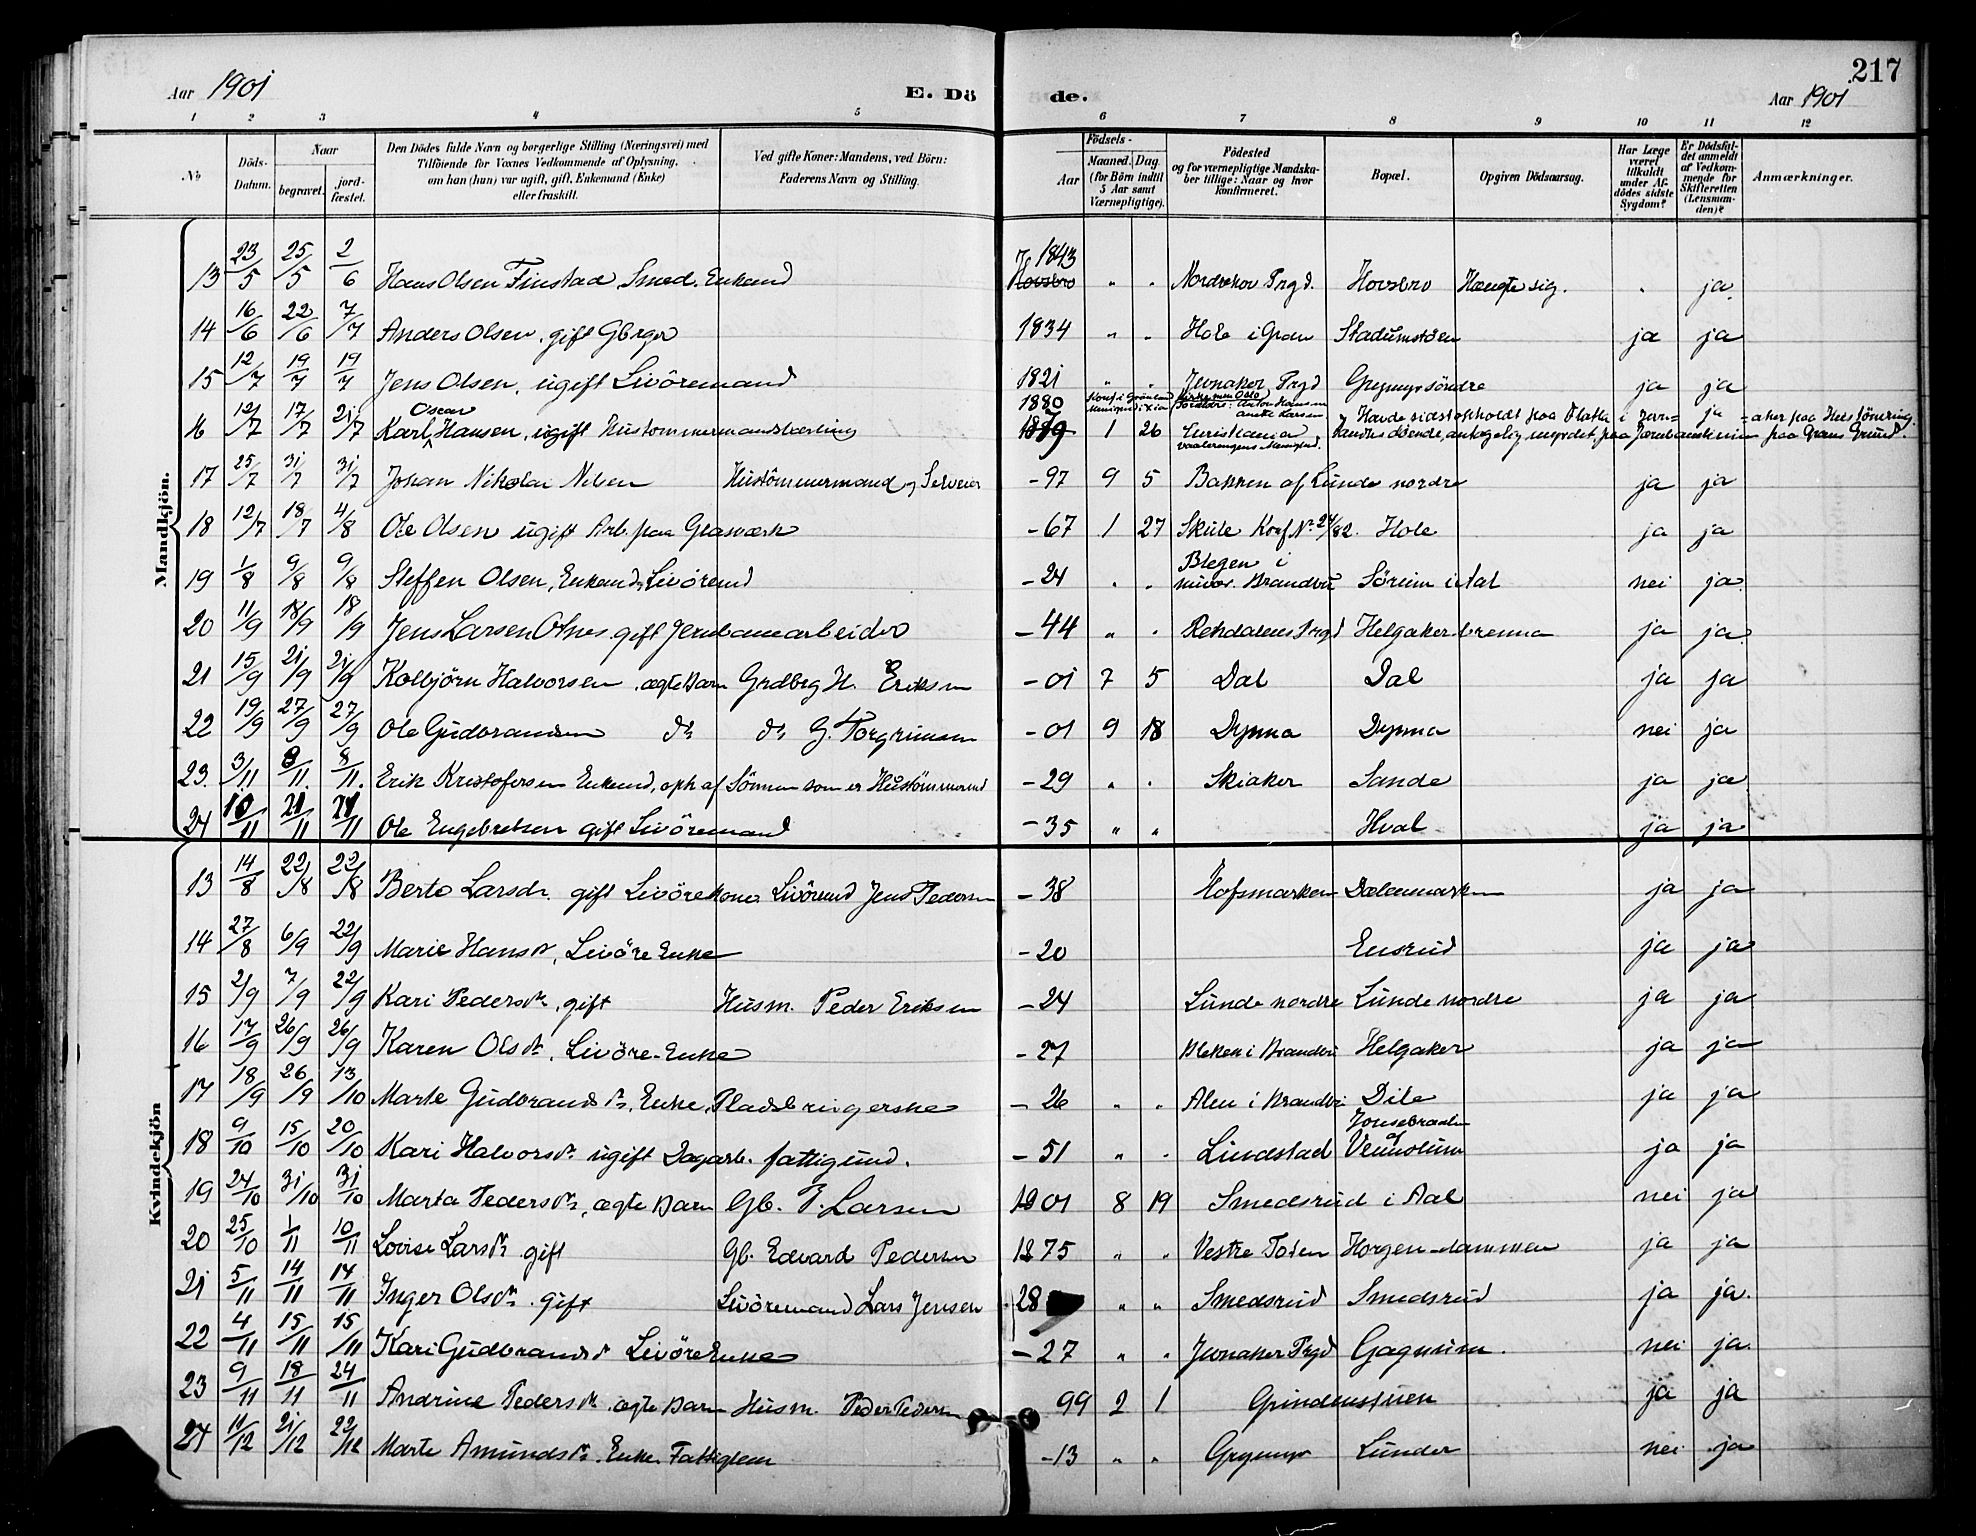 217
Aar 1901 E. Dö de. Aar 1901
1 2 3 4 5 6 7 8 9 10 11 12
No Döds-Datum. Naar begravet. jord-fæstet. Den Dödes fulde Navn og borgerlige Stilling (Næringsvei) med Tilföiende for Voxnes Vedkommende af Oplysning, om han (hun) var ugift, gift, Enkemand (Enke) eller fraskilt. Ved gifte Koner: Mandens, ved Börn: Faderens Navn og Stilling. Födsels- Aar Maaned. Dag. (for Börn indtil 5 Aar samt Værnepligtige). Födested og for værnepligtige Mandska-ber tillige: Naar og hvor konfirmeret. Bopæl. Opgiven Dödsaarsag. Har Læge været tilkaldt under Af-dödes sidste Sygdom? Er Dödsfal-det anmeldt af Vedkom-mende for Skifteretten (Lensman-den)? Anmærkninger.
Mandkjön.
13 23/5 25/5 2/6 Hans Olsen Finstad Smed. Enkemd 1843 Hovsbro " " Nordrehov Prgd. Hovsbro Hængte sig. " ja
14 16/6 22/6 7/7 Anders Olsen, gift Gbrger 1834 " " Hole i Gran Stadumstöen ja ja
15 12/7 19/7 19/7 Jens Olsen, ugift Livöremand 1821 " " Jevnaker Prgd Grymyr söndre ja ja
16 12/7 17/7 21/7 Karl Oscar Hansen, ugift Hustommermandslærling 1880 1879 1 26 Kristiania ja
17 25/7 31/7 31/7 Johan Nikolai Nilsen Hustömmermand og Selveier -97 9 5 Bakken af Lunde nordre ja ja
18 12/7 18/7 4/8 Ole Olsen ugift Arb. paa Glasværk -67 1 27 Skute Konf Nr 24/82. Hole ja ja
19 1/8 9/8 9/8 Steffen Olsen, Enkemd, Livöremd -24 " " Blegen i Brandbu Söreim i tal nei ja
20 11/9 18/9 18/9 Jens Larsen Otnes gift Jernbanearbeider -44 " " Prgd Helgakerbrenna ja ja
21 15/9 21/9 21/9 Kolbjörn Halvorsen ægte Barn Grdbrg H. Eriksen -01 7 5 Dal Dal ja ja
22 19/9 27/9 27/9 Ole Gudbrandsen do do G. Torgrimsen -01 9 18 Dynna Dynna nei ja
23. 3/11 8/11. 8/11. Erik Kristofersen Enkemd, oph af Sönnen som er Hustömmermd -29 " " Skiaker Sande ja ja
24 10/11 21/11 21/11 Ole Engebretsen gift Livöremand -35 " " Hval ja ja
Kvindekjön
13 14/8 22/8 22/8 Berte Larsdr. gift Livörekone Livöremd Jens Pedersen -38 Hofsmarken Dælenmarken ja ja
14 27/8 6/9 22/9 Marie Hansdr, Livöre Enke -20 Ensrud ja ja
15 2/9 7/9 22/9 Kari Pedersdr, gift Husm. Peder Eriksen -24 Lunde nordre Lunde nordre ja ja
16 17/9 26/9 26/9 Karen Olsdr, Livöre-Enke -27 Bleken i Brandbu Helgaker ja ja
17 18/9 26/9 13/10 Marte Gudbrandsdr, Enke, Pladsbrugerske -26 " " Alen i Brandbu ja ja
18 9/10 15/10 20/10 Kari Halvorsdr ugift Dagarb. fattigund. -51 " " Lundstad ja ja
19 24/10 31/10 31/10 Marta Pedersdr, ægte Barn Gb. P. Larsen 1901 8 19 Smedsrud i Aal nei ja
20 25/10 1/11 10/11 Lovise Larsdr gift Gb. Edvard Pedersen 1875 " " Vestre Toten Horgen dammen ja ja
21 5/11 14/11 14/11 Inger Olsdr. gift Livöremand Lars Jensen 28 " " Smedsrud Smedsrud ja ja.
22 4/11 15/11 15/11 Kari Gudbrandsdr Livöre Enke -27 " " Jevnaker Prgd Gagnum. nei ja
23 9/11 18/11 24/11 Andrine Pedersdr. ægte Barn Husm. Peder Pedersen 99 2 1 Grindenstuen ja ja
24 11/12 21/12 22/12 Marte Amundsdr. Enke Fattiglem -13 " " Grymyr Lunder nei ja